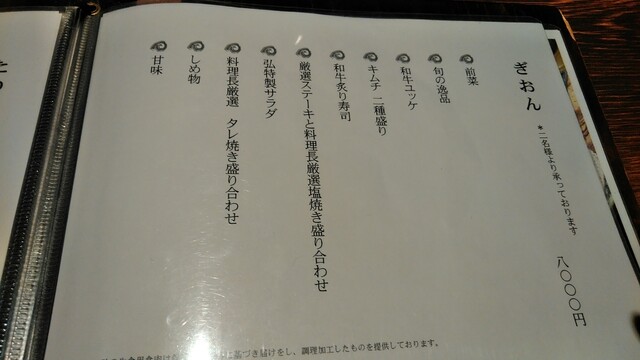 ぎおん ＊二名様より承っております 八〇〇〇円
前菜
旬の逸品
和牛ユッケ
キムチ 二種盛り
和牛炙り寿司
厳選ステーキと料理長厳選塩焼き盛り合わせ
弘特製サラダ
料理長厳選 タレ焼き盛り合わせ
しめ物
甘味
基づき届けをし、調理加工したものを提供しております。